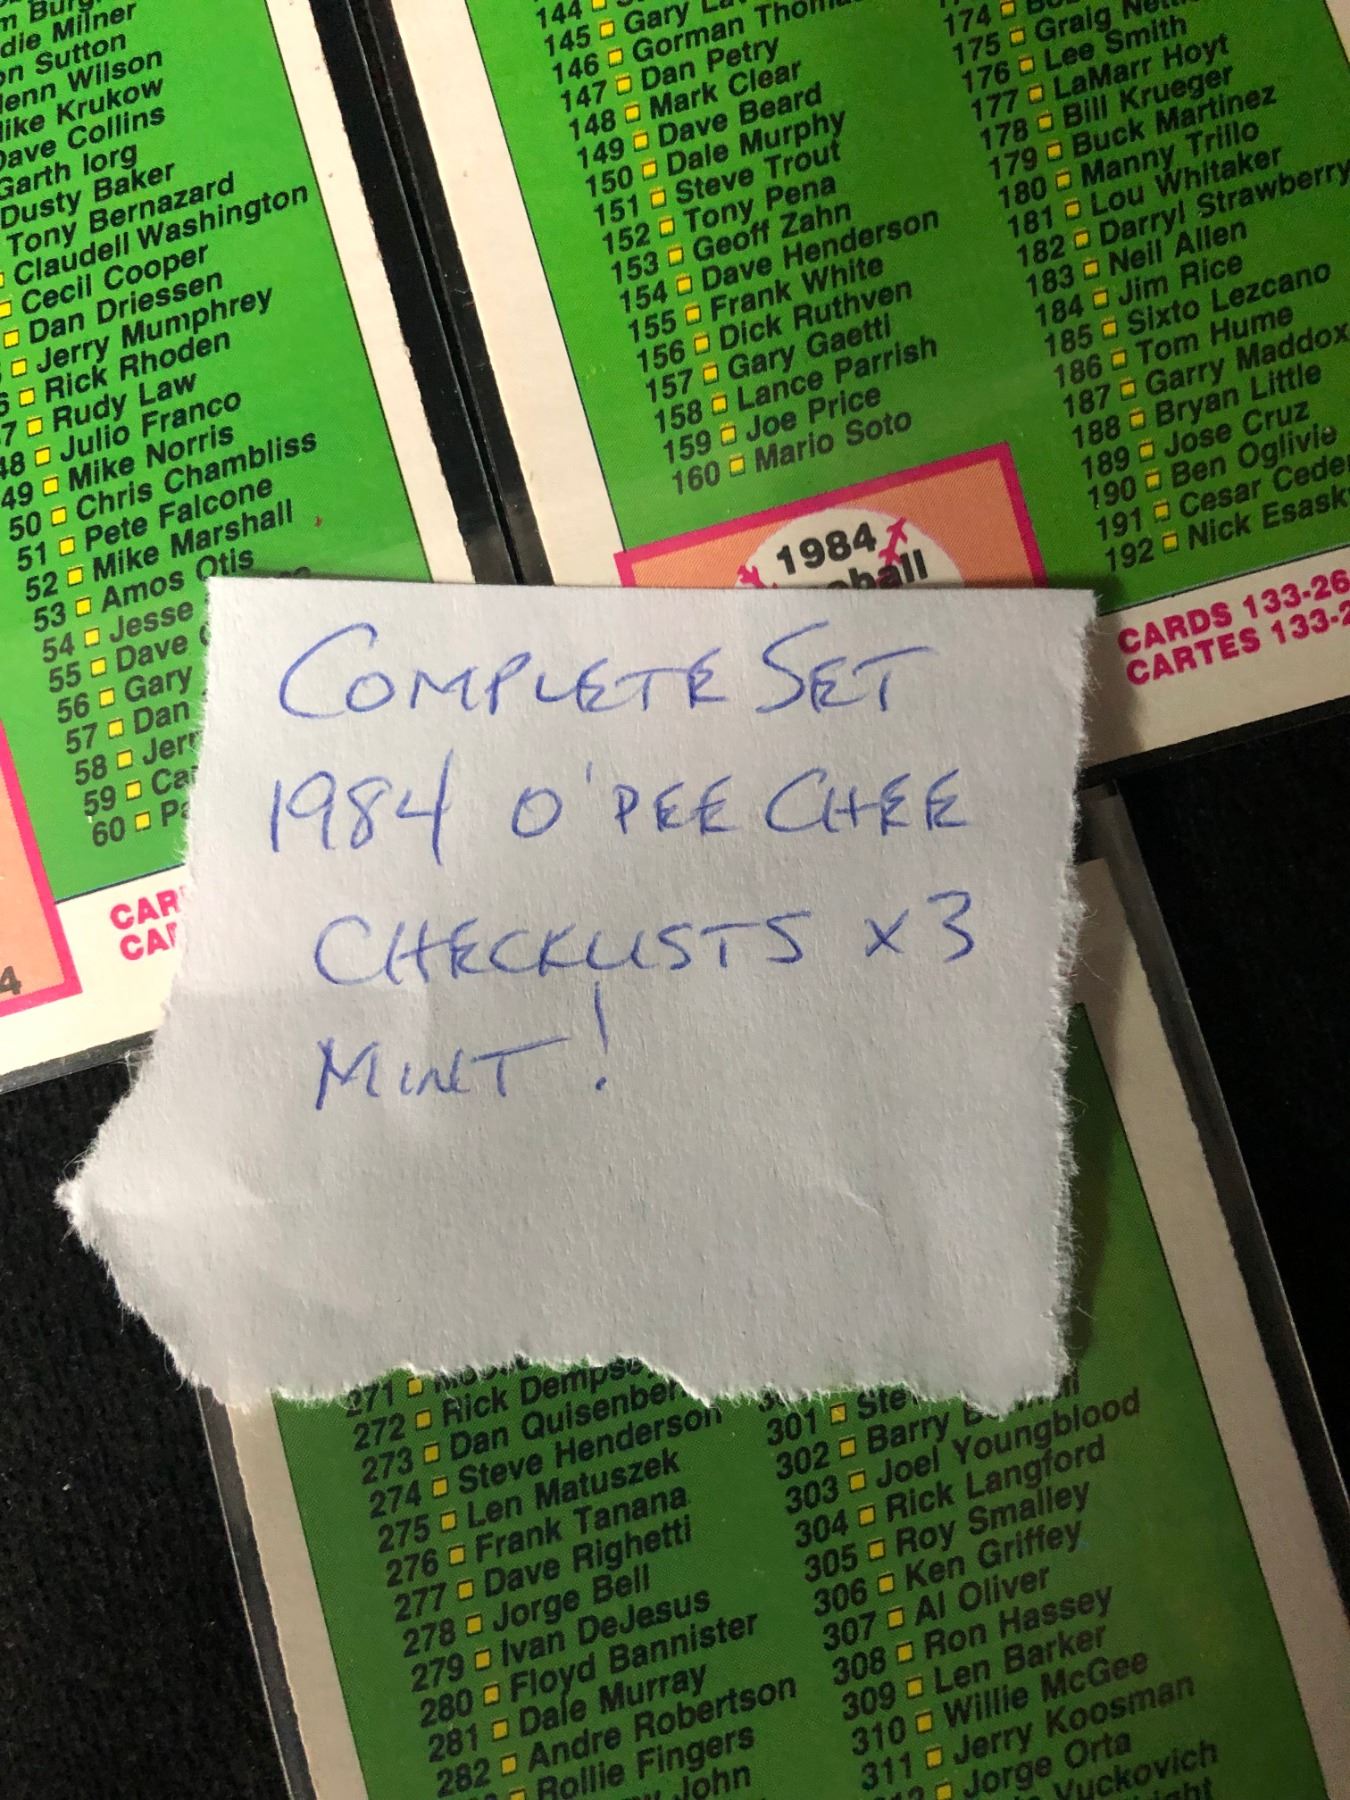 m Burg
die Milner
on Sutton
lenn Wilson
like Krukow
Dave Collins
Garth Iorg
Dusty Baker
Tony Bernazard
Claudell Washington
Cecil Cooper
Dan Driessen
Jerry Mumphrey
6 Rick Rhoden
7 Rudy Law
48 Julio Franco
49 Mike Norris
50 Chris Chambliss
51 Pete Falcone
52 Mike Marshall
53 Amos Otis
54 Jesse
55 Dave
56 Gary
57 Dan
58 Jerr
59 Ca
60 Pa
CAR
CAR
4
144
145 Gary Lav
146 Gorman Thomas
147 Dan Petry
148 Mark Clear
149 Dave Beard
150 Dale Murphy
151 Steve Trout
152 Tony Pena
153 Geoff Zahn
154 Dave Henderson
155 Frank White
156 Dick Ruthven
157 Gary Gaetti
158 Lance Parrish
159 Joe Price
160 Mario Soto
174
175 Graig Nett
176 Lee Smith
177 LaMarr Hoyt
178 Bill Krueger
179 Buck Martinez
180 Manny Trillo
181 Lou Whitaker
182 Darryl Strawberry
183 Neil Allen
184 Jim Rice
185 Sixto Lezcano
186 Tom Hume
187 Garry Maddox
188 Bryan Little
189 Jose Cruz
190 Ben Oglivie
191 Cesar Cede
192 Nick Esask
1984
ball
CARDS 133-26
CARTES 133-2
COMPLETE SET
1984 O'PEE CHEE
CHECKLISTS x 3
MINT!
271
272 Rick Dempse
273 Dan Quisenber
274 Steve Henderson
275 Len Matuszek
276 Frank Tanana
277 Dave Righetti
278 Jorge Bell
279 Ivan DeJesus
280 Floyd Bannister
281 Dale Murray
282 Andre Robertson
Rollie Fingers
John
301 Ste
302 Barry
303 Joel Youngblood
304 Rick Langford
305 Roy Smalley
306 Ken Griffey
307 Al Oliver
308 Ron Hassey
309 Len Barker
310 Willie McGee
311 Jerry Koosman
Jorge Orta
Vuckovich